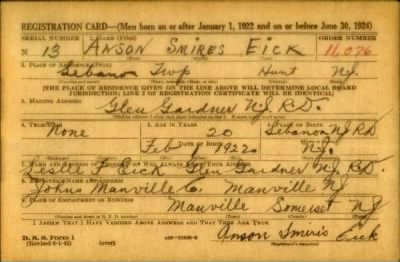 REGISTRATION CARD—(Men born on or after January 1, 1922 and on or before June 30, 1924)
SERIAL NUMBER 1. NAME (Print) ORDER NUMBER
N 13 ANSON SMIRES EICK 11,076
2. PLACE OF RESIDENCE (Print)
Lebanon Twp Hunt NJ.
[THE PLACE OF RESIDENCE GIVEN ON THE LINE ABOVE WILL DETERMINE LOCAL BOARD
JURISDICTION; LINE 2 OF REGISTRATION CERTIFICATE WILL BE IDENTICAL]
3. MAILING ADDRESS
Glen Gardner NJ R.D.
4. TELEPHONE 5. AGE IN YEARS
None 20 Lebanon NJ RD
DATE OF BIRTH
Feb 1922 NJ.
7. NAME AND ADDRESS OF PERSON WHO WILL ALWAYS KNOW YOUR ADDRESS
Leslie Eick Glen Gardner NJ. R.D.
8. EMPLOYER'S NAME AND ADDRESS
Johns Manville Co. Manville NJ
9. PLACE OF EMPLOYMENT OR BUSINESS
Manville Somerset NJ
I AFFIRM THAT I HAVE VERIFIED ABOVE ANSWERS AND THAT THEY ARE TRUE.
D. S. S. Form 1
(Revised 6-1-42) (over)
Anson Smires Eick